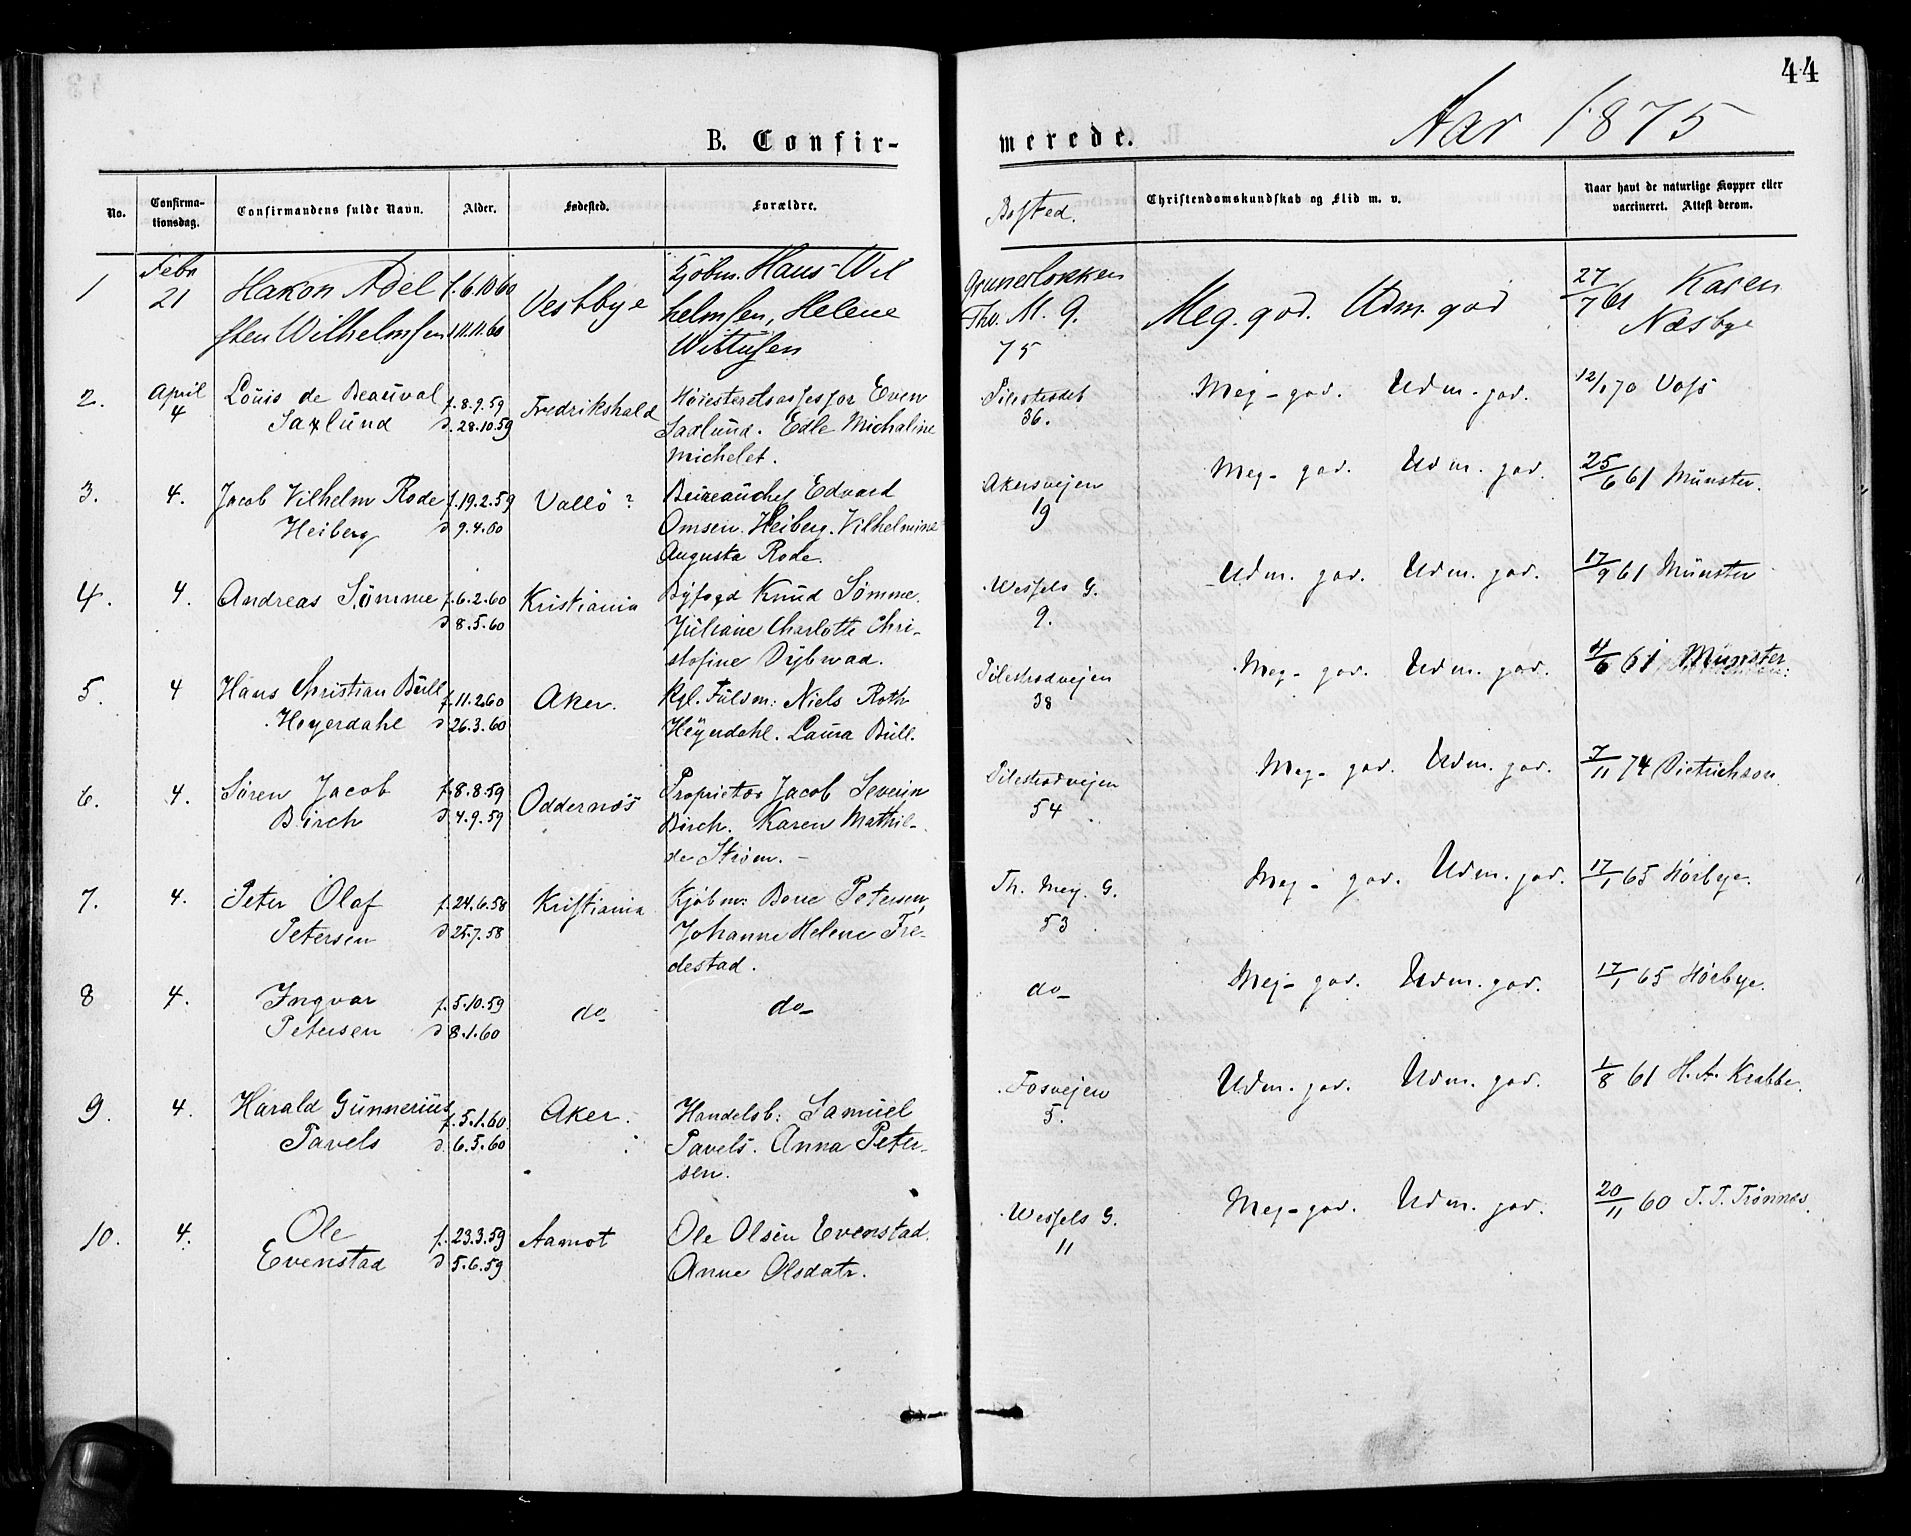 44
Aar 1875
B. Confir-
merede.
No.
Confirma-
tionsdag.
Confirmandens fulde Navn.
Alder.
Fødested.
Forældre.
Bosted.
Christendomskundskab og Flid m. v.
Naar havt de naturlige Kopper eller
vaccineret. Attest derom.
1
Febr
21
Hakon Adel
sten Wilhelmsen
f. 6.10.60
d 11.11.60
Vestbye
Kjøbm. Hans Wil
helmsen, Helene
Wittusen
Grunerløkken
Thv. M. G.
75
Meg. god. Udm. god
27/7 61 Karen
Næsbye
2.
April
4
Louis de Beauval
Saxlund
f. 8.9.59
d. 28.10.59
Fredrikshald
Høiesteretsassessor Even
Saxlund. Edle Michaline
Michelet.
Pilestrædet
36.
Meg- god. Udm. god.
12/1 70 Voss
3.
4.
Jacob Vilhelm Rode
Heiberg
f. 19.2.59
d 9.4.60
Vallö?
Bureauchef Edvard
Omsen Heiberg. Vilhelmine
Augusta Rode.
Akersvejen
19
Meg- god. Udm. god.
25/6 61 Münster.
4.
4.
Andreas Sømme
f. 6.2.60
d 8.5.60
Kristiania
Byfogd Knud Sømme.
Juliane Charlotte Chri-
stofine Dybwad.
Wessels G.
9.
Udm. god. Udm. god.
17/9 61 Münster
5.
4
Hans Christian Bull
Heyerdahl
f. 11.2.60
d 26.3.60
Aker.
Kgl. Fuldm: Niels Roth
Heyerdahl. Laura Bull.
Pilestrædvejen
38
Meg- god. Udm. god.
11/6 61 Münster.
6.
4.
Søren Jacob
Birch
f. 8.8.59
d 4.9.59
Oddernæs
Proprietær Jacob Severin
Birch. Karen Mathil-
de Strøm. -
Pilestrædvejen
54
Meg- god. Udm. god.
7/11 74 Dietrichson
7.
4.
Peter Olaf
Petersen
f. 24.6.58
d 25.7.58
Kristiania
Kjøbm: Bone Petersen,
Johanne Helene Fre-
destad.
Th. Mey. G.
53
Meg- god. Udm. god.
17/1 65 Hørbye.
8
4.
Ingvar
Petersen
f. 5.10.59
d 8.1.60
do-
do-
do-
Meg- god. Udm. god.
17/1 65 Hørbye.
9.
4.
Harald Gunnerius
Pavels
f. 5.1.60
d. 6.5.60
Aker.
Handelsb: Samuel
Pavels. Anna Peter-
sen.
Fosvejen
5.
Udm. god. Udm. god.
1/8 61 H. A. Krabbe.
10.
4.
Ole
Evenstad
f. 23.3.59
d 5.6.59
Aamot
Ole Olsen Evenstad.
Anne Olsdatr.
Wessels G.
11
Meg- god. Udm. god.
20/11 60 T. T. Trønnæs.